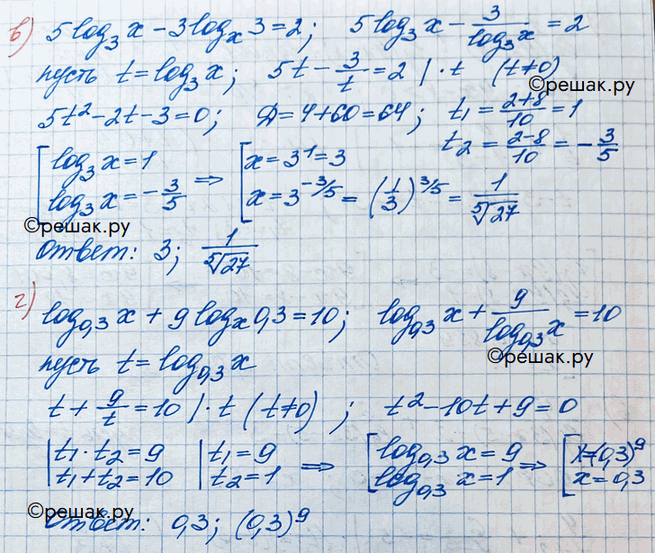 в) 5log₃x − 3logₓ3 = 2; 5log₃x − 3/log₃x = 2
пусть t = log₃x; 5t − 3/t = 2 | · t (t≠0)
©решак.ру
5t² − 2t − 3 = 0; Д = 4+60 = 64; t₁ = (2+8)/10 = 1
t₂ = (2−8)/10 = −3/5
[log₃x = 1 ⇒ [x = 3¹ = 3
log₃x = −3/5 x = 3^(−3/5) = (1/3)^(3/5) = 1/⁵√27
©решак.ру
Ответ: 3; 1/⁵√27
г) log₀,₃x + 9logₓ0,3 = 10; log₀,₃x + 9/log₀,₃x = 10
©решак.ру
пусть t = log₀,₃x
t + 9/t = 10 | · t (t≠0); t² − 10t + 9 = 0
|t₁ · t₂ = 9 |t₁ = 9 ⇒ [log₀,₃x = 9 ⇒ [x=(0,3)⁹
|t₁ + t₂ = 10 |t₂ = 1 log₀,₃x = 1 x = 0,3
©решак.ру
Ответ: 0,3; (0,3)⁹